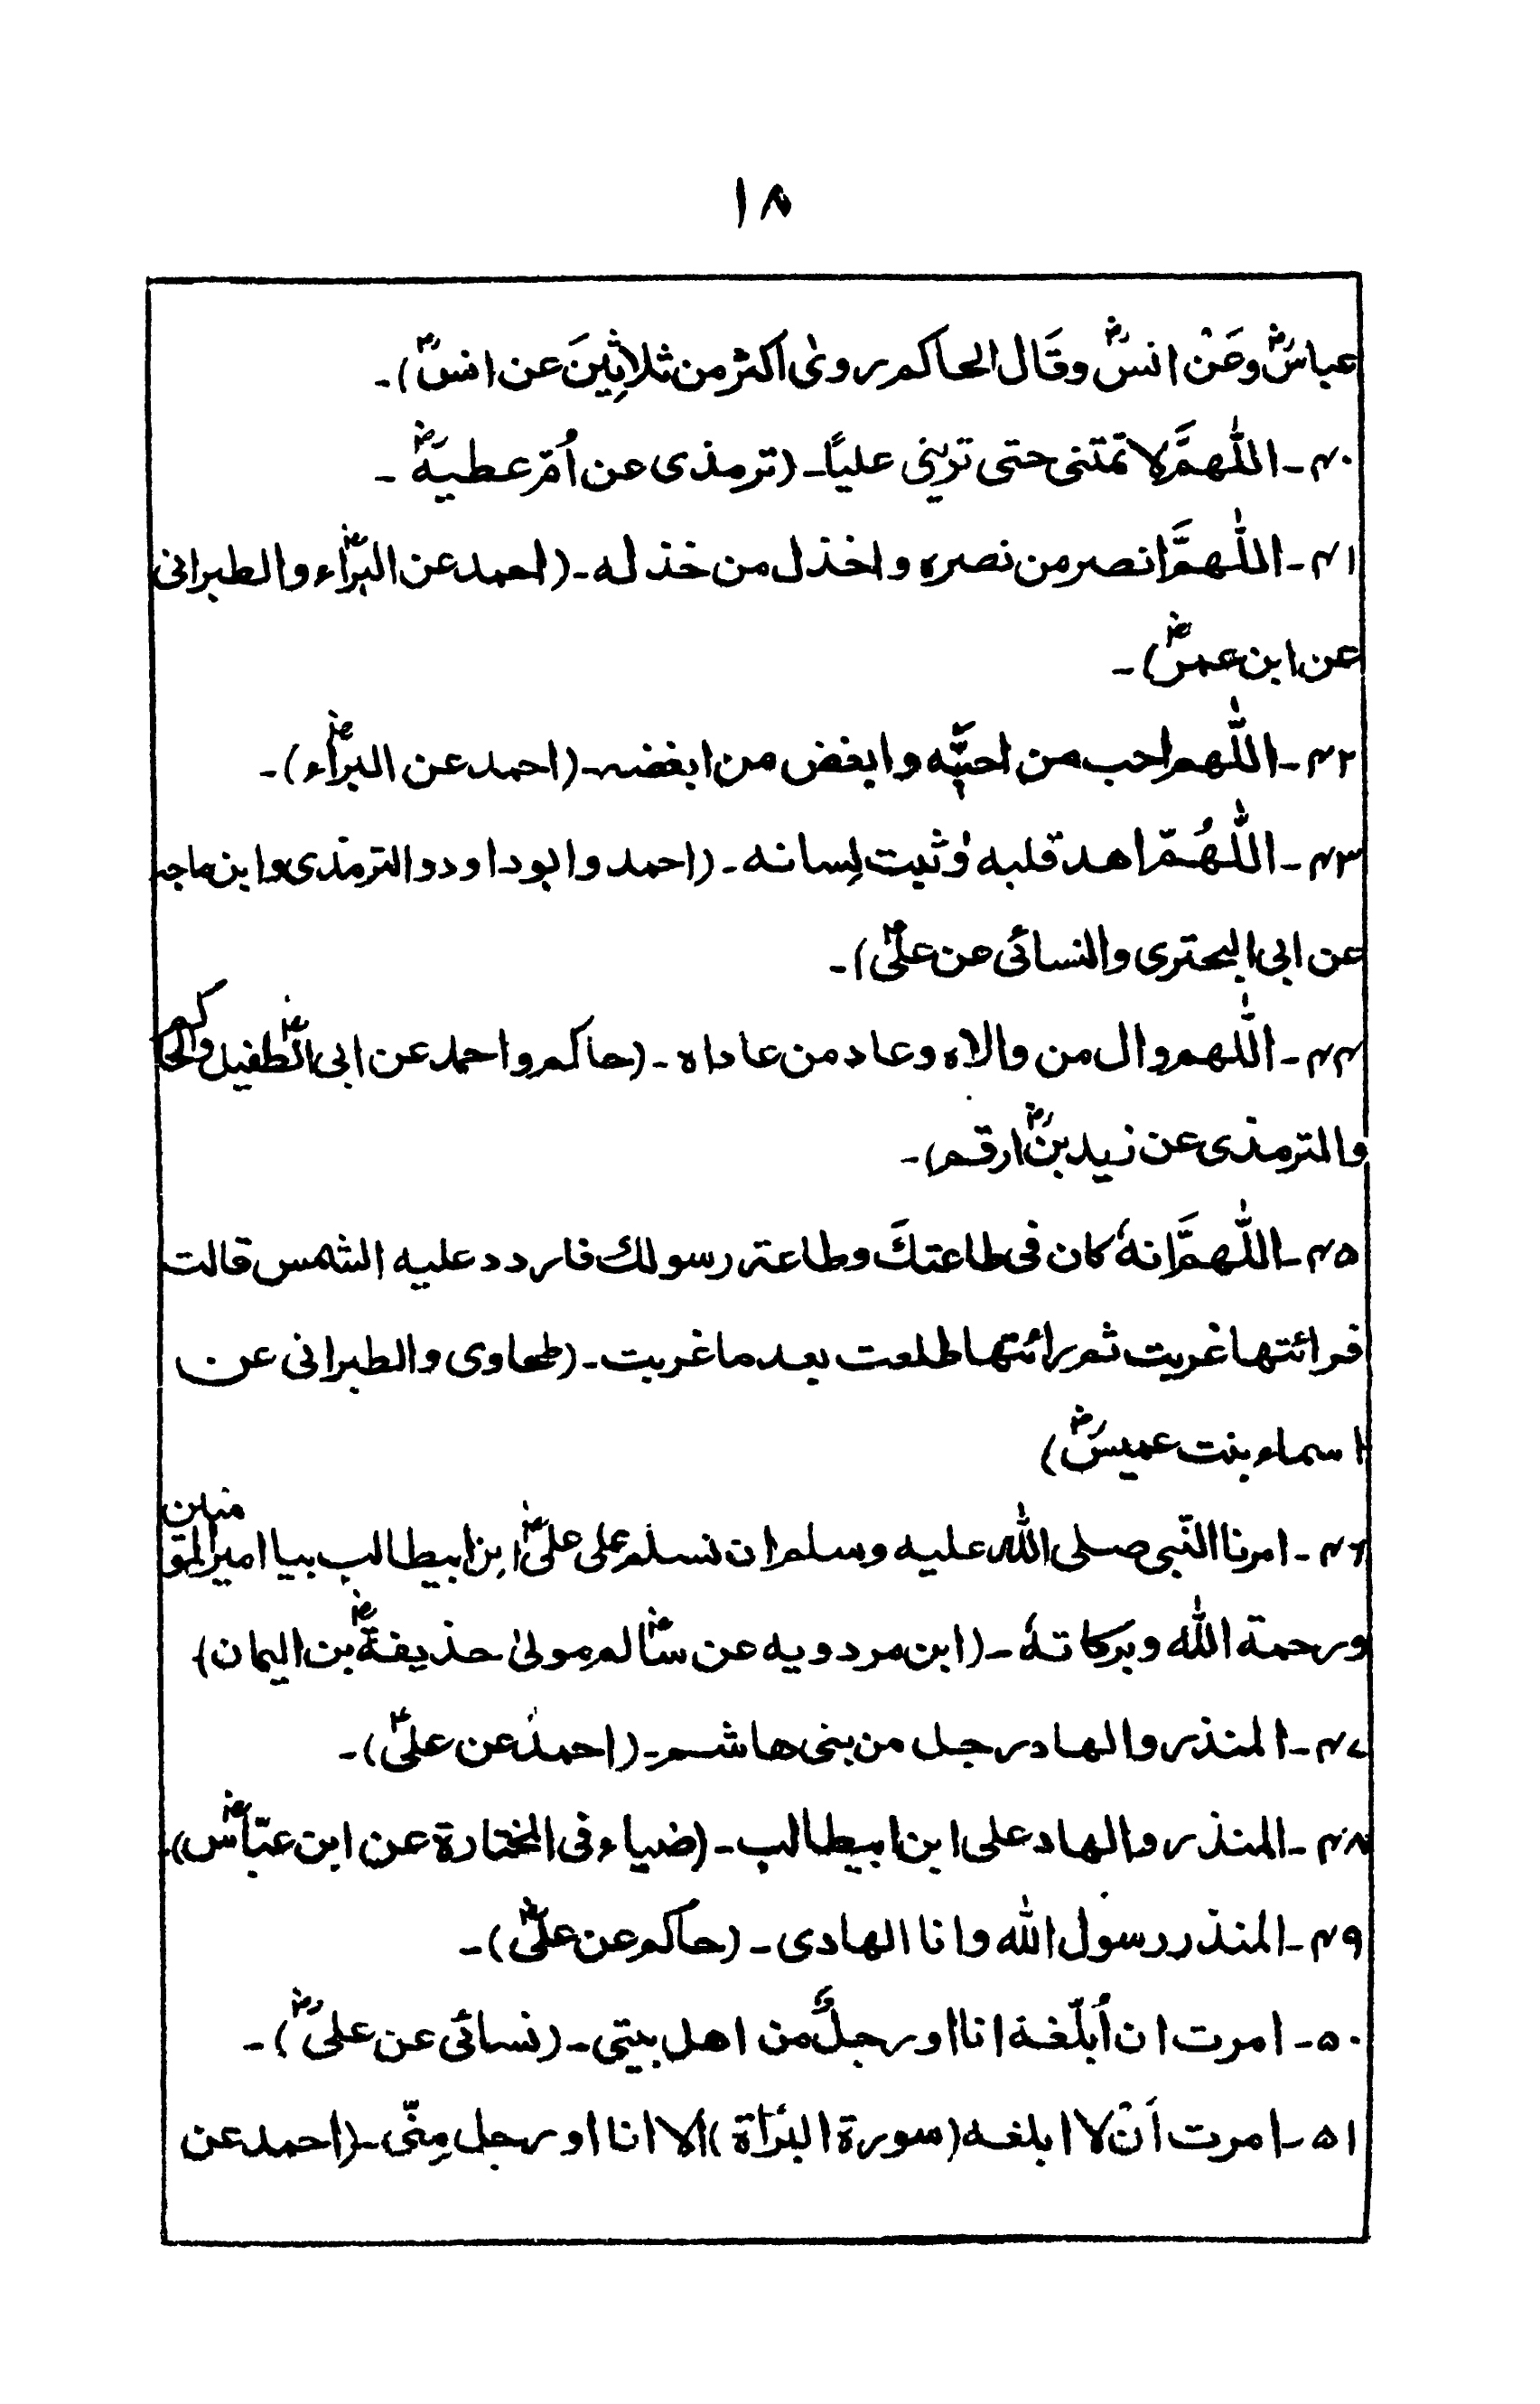 ۱۸
عباسؓ وعَنْ انسؓ وقَال الحاکم روٰی اکثر من ثلاثِینَ عن انسؓ)۔
۴۰۔ اللّٰھمَّ لا تمتنی حتی ترینی علیاً۔ (ترمذی عن اُمّ عطیۃؓ ۔
۴۱۔ اللّٰھمَّ انصر من نصرہ واخذل من خذلہ۔ (احمد عن البرآءؓ والطبرانی
عن ابن عمرؓ)۔
۴۲۔ اللّٰھم احب من احبَّہ وابغض من ابغضہ۔ (احمد عن البرآءؓ)۔
۴۳۔ اللّٰھُمّ اھد قلبہ وثبت لِسانہ۔ (احمد وابوداود والترمذی وابن ماجہ
عن ابی البحتری والنسائی عن علیؓ)۔
۴۴۔ اللّٰھم وال من والاہ وعاد من عاداہ۔ (حاکم واحمد عن ابی الطفیلؓ والحاکم
والترمذی عن زید بنؓ ارقم)۔
۴۵۔ اللّٰھمَّ انہٗ کان فی طاعتكَ وطاعۃ رسولك فاردد علیہ الشمس قالت
فرائتھا غربت ثم رائتھا طلعت بعد ما غربت۔ (طحاوی والطبرانی عن
اسماء بنت عمیسؓ)
۴۶۔ امرنا النّبی صلی اللّٰہ علیہ وسلم ان نسلم علی علیؓ ابن ابیطالب بیا امیر المؤمنین
ورحمۃ اللّٰہ وبرکاتہٗ۔ (ابن مردویہ عن سالمؓ مولیٰ حذیفۃؓ بن الیمان)
۴۷۔ المنذر والھاد رجل من بنی ھاشم۔ (احمد عن علیؓ)۔
۴۸۔ المنذر والھاد علی ابن ابیطالب۔ (ضیاء فی المختارۃ عن ابن عبّاسؓ)۔
۴۹۔ المنذر رسول اللّٰہ وانا الھادی۔ (حاکم عن علیؓ)۔
۵۰۔ امرت ان اُبلّغہ انا اورجلٌ من اھل بیتی۔ (نسائی عن علیؓ)۔
۵۱۔ امرت اَنْ لا ابلغہ (سورۃ البرٓاۃ) الا انا اورجل مِنّی۔ (احمد عن